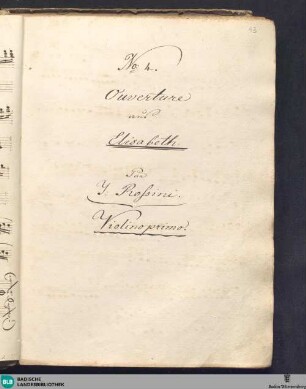 No: 4.
Ouverture
aus
Elisabeth.
J. Rossini.
Violino primo.
BLB
BADISCHE
LANDESBIBLIOTHEK